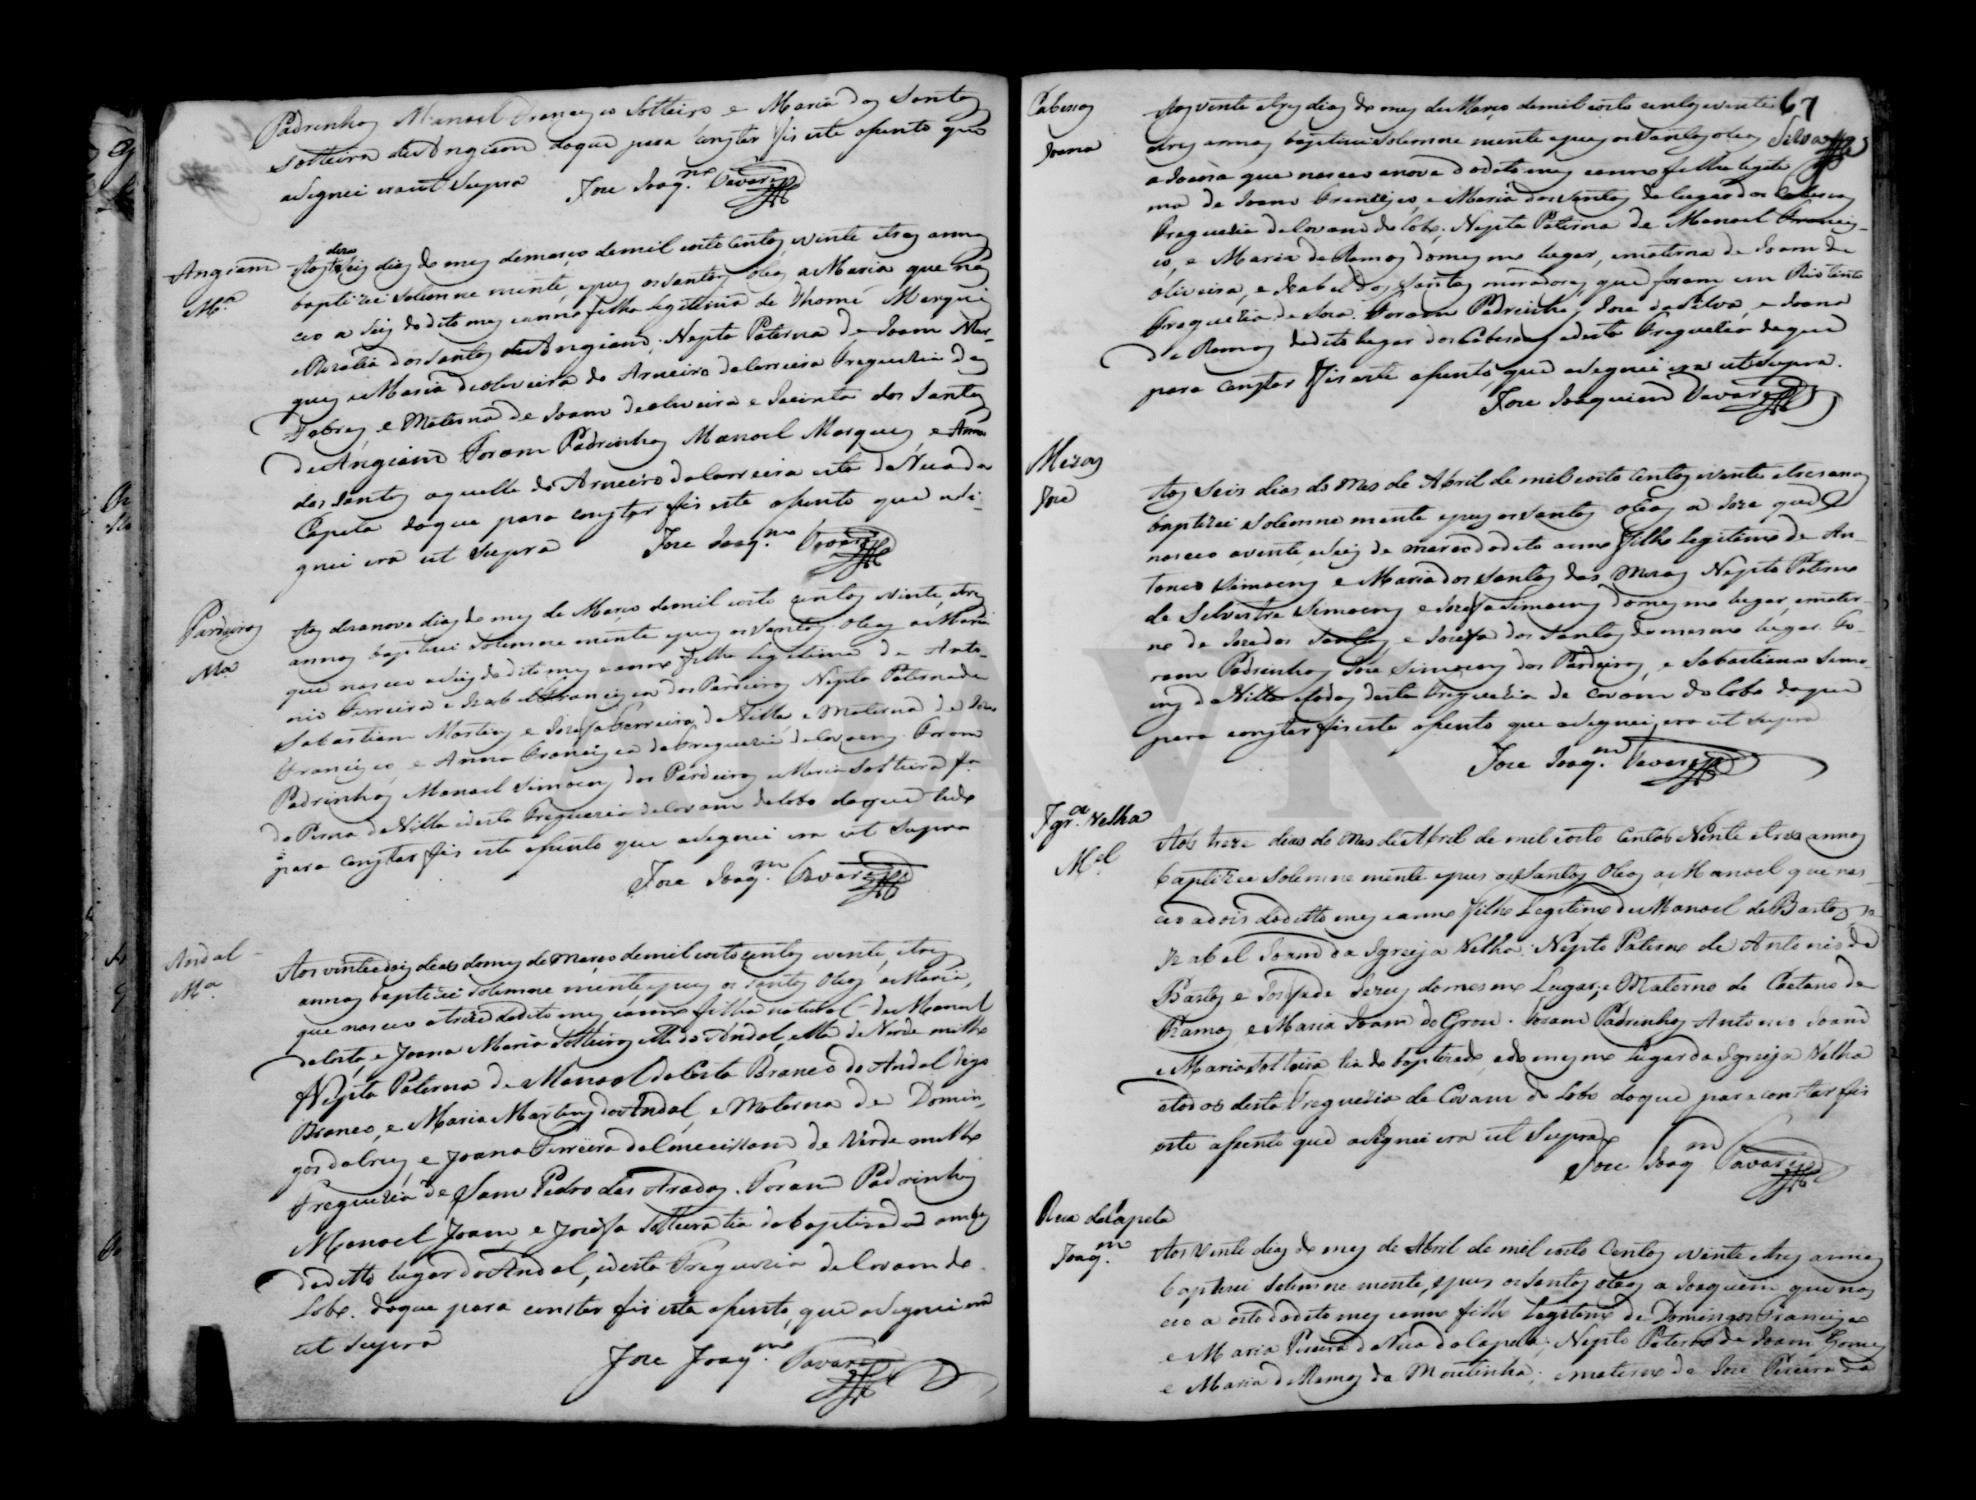 Padrinhos Manoel Francisco Solteiro e Maria dos Santos
solteira de Angiam doque para constar fis este asento que
asignei era ut supra Joze Joaq.m Tavares
Angiam
M.a
Aos dezaseis dias do mes de março de mil oito centos evinte etres annos
baptizei solemne mente, epus os santos oleos a Maria que nas
ceo a seis do dito mes eanno filha legitima de Thomé Marques
e Rozalia dos Santos de Angiam; Nepta Paterna de Joam Mar-
ques e Maria de oliveira do Arneiro da carreira Freguezia das
Febres, e Materna de Joam de oliveira e Jacinta dos Santos
de Angiam Foram Padrinhos Manoel Marques, e Anna
dos Santos aquelle do Arneiro da Carreira esta da Rua da
Capela doque para constar fis este asento que asi-
gnei era ut supra Joze Joaq.m Tavares
Pardeiros
Ma
Aos dezanove dias do mes de Março de mil oito centos evinte, etres
annos baptizei solemne mente epus os santos oleos a Maria
que nasceo aseis do dito mes eanno filha legitima de Anto-
nio Ferreira e Izabel Francisca dos Pardeiros Nepta Paterna de
Sabastiam Martins e Josefa Ferreira, da Villa e Materna de Joze
Francisco, e Anna Francisca da freguezia de Covoens. Foram
Padrinhos Manoel Simoens dos Pardeiros e Maria Solteira f.a
da Villa edesta Freguezia de Covam do lobo doque tudo
para constar fis este asento que asignei era ut supra
Joze Joaq.m Tavares
Andal
M.a
Aos vinte edois dias do mes de Março de mil oito centos evinte, etres
annos baptizei solemne mente, epus os santos oleos a Maria,
que nasceo a treze do dito mes, eanno filha natural de Manoel
da Costa, e Joana Maria Solteiros elle do Andal, ella de Verde milho
Nepta Paterna de Manoel da Costa Branco do Andal digo
Branco, e Maria Martins do Andal, e Materna de Domin-
gos da Crus, e Joana Ferreira da Conceissam de Verde milho
Freguezia de Sam Pedro das Aradas. Foram Padrinhos
Manoel Joam, e Josefa solteira tia da baptizada ambos
do ditto lugar do Andal, edesta Freguezia de Covam do
Lobo. doque para constar fis este asento, que asignei era
ut supra Joze Joaq.m Tavares
67
Silva
Cabesos
Joana
Aos vinte etres dias do mes de Março de mil oito centos evinte
etres annos baptizei solemne mente epus os santos oleos
a Joana que nasceo anove do dito mes eanno filha legiti
ma de Joam Francisco, e Maria dos Santos do lugar dos Cabesos
Freguezia de Covam do lobo; Nepta Paterna de Manoel Francis-
co, e Maria de Ramos do mesmo lugar, ematerna de Joam de
oliveira, e Izabel dos Santos moradores que foram em Rio tinto
Freguezia de Soza. Foram Padrinhos, Joze da Silva, e Joana
de Ramos do dito lugar dos Cabesos, edesta Freguezia doque
para constar fis este asento, que asignei era ut supra.
Joze Joaquim Tavares
Mezas
Joze
Aos seis dias do mes de Abril de mil oito centos evinte etres annos
baptizei solemne mente epus os santos oleos a Joze que
nasceo avinte, eseis de março do dito anno filho legitimo de An-
tonio Simoens e Maria dos Santos das Mezas Nepto Paterno
de Silvestre Simoens e Josefa Simoens do mesmo lugar, emater-
no de Joze dos Santos, e Josefa dos Santos do mesmo lugar. Fo-
ram Padrinhos Joze Simoens dos Pardeiros, e Sabastiana Simo-
ens da Villa etodos desta Freguezia de Covam do lobo doque
para constar fis este asento que asignei, era ut supra
Joze Joaq.m Tavares
Igr.a Velha
M.el
Aos treze dias do mes de Abril de mil oito Centos Vinte etres annos
baptizei solemne mente epus os santos oleos a Manoel que nas-
ceo adois do ditto mes eanno filho Legitimo de Manoel de Bastos, e
Izabel Joam da Igreija Velha. Nepto Paterno de Antonio de
Bastos e Josefa de Jezus do mesmo Lugar, e Materno de Caetano de
Ramos, e Maria Joam do Grou. Foram Padrinhos Antonio Joam
e Maria Solteira tia do baptizado, edo mesmo lugar da Igreija Velha
etodos desta Freguezia de Covam do Lobo doque para constar fis
este asento que asignei era ut supra
Joze Joaq.m Tavares
Rua da Capela
Joaq.m
Aos vinte dias do mes de Abril de mil oito Centos evinte etres annos
baptizei solemne mente, epus os santos oleos a Joaquim que nas
ceo a oito do dito mes eanno filho Legitimo de Domingos Francisco
e Maria Pereira da Rua da Capela; Nepto Paterno de Joam Gomes
e Maria de Ramos da Moutinha; ematerno de Joze Pereira da